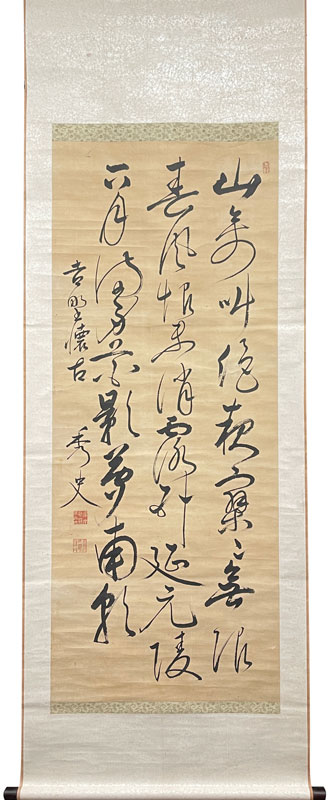 山禽叫絶夜寥々無限
春風恨未消露臥延元陵
下月満身花影夢南朝
吉野懐古 秀史